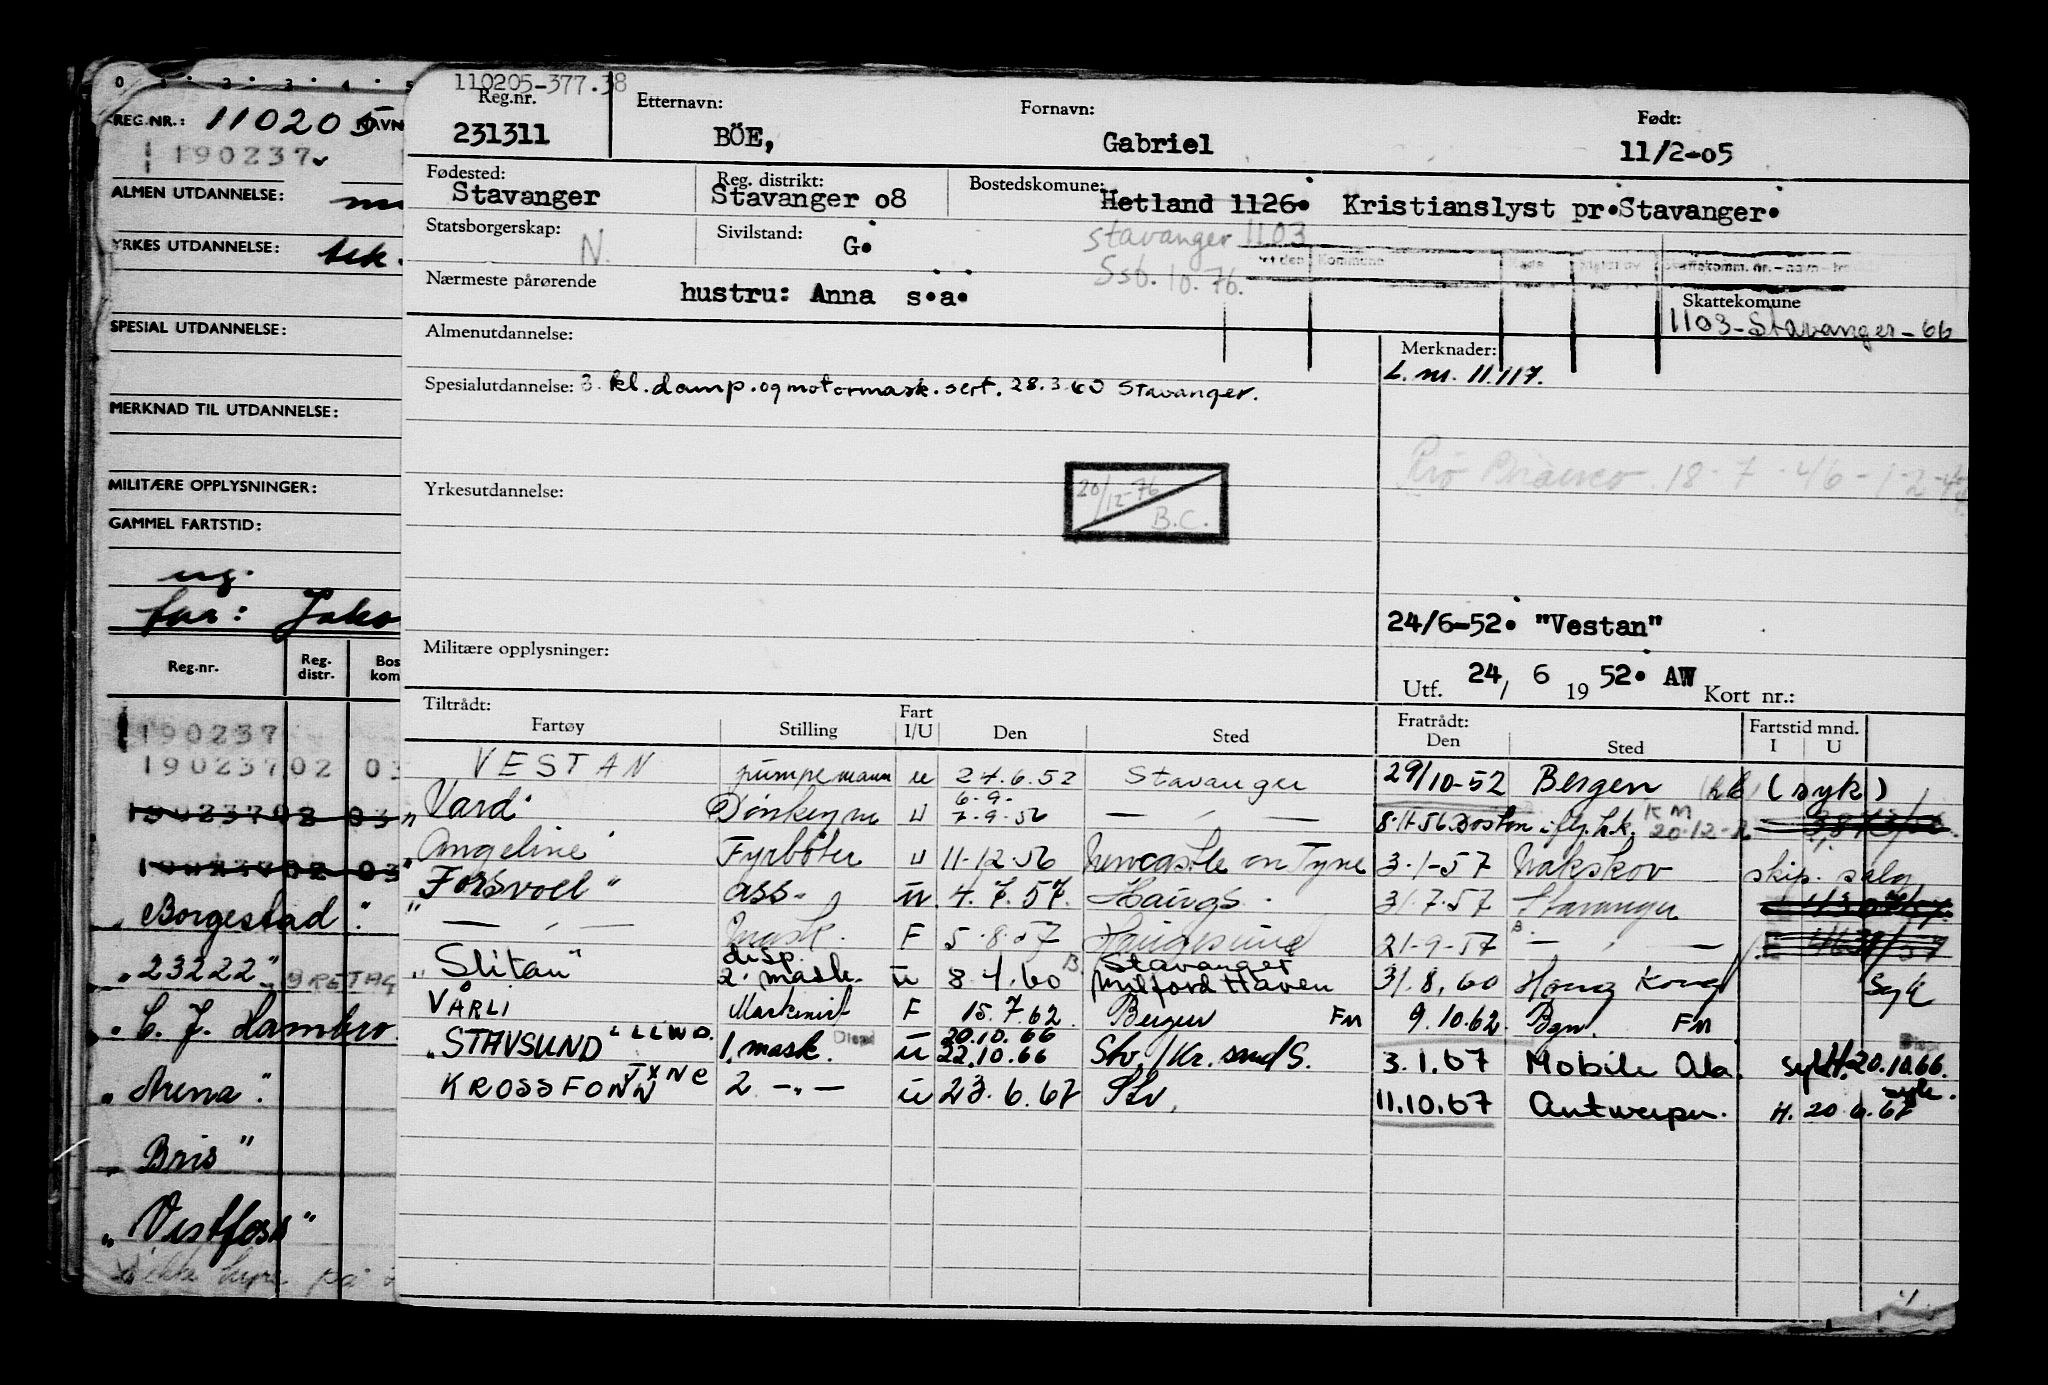 0 1 2 3 4 5
REG.NR.: 110205 NAVN
190237
ALMEN UTDANNELSE:
YRKES UTDANNELSE: tek.
SPESIAL UTDANNELSE:
MERKNAD TIL UTDANNELSE:
MILITÆRE OPPLYSNINGER:
GAMMEL FARTSTID:
ug.
far: Jako
Reg.nr. Reg. distr. Bos kom
190237
190237 02 03
190237 02 03
190237 02 03
"Borgestad"
"23222" BRETAG
"C. J. Hambro
"Arena"
"Bris"
"Vestfoss"
ikke hyre på
110205-377.38
Reg.nr. Etternavn: Fornavn: Født:
231311 BÖE, Gabriel 11/2-05
Fødested: Reg. distrikt: Bostedskomune:
Stavanger Stavanger o8 Hetland 1126. Kristianslyst pr.Stavanger.
Statsborgerskap: N. Sivilstand: G. Stavanger 1103
Kommune
Ssb. 10.76.
Nærmeste pårørende hustru: Anna s.a.
Skattekomune
1103-Stavanger-66
Almenutdannelse: Merknader:
L. nr. 11.117.
Spesialutdannelse: 3. kl. damp. og motormask. sert. 28.3.60 Stavanger.
18-7-46-1-2-
Yrkesutdannelse: 20/12-76 B.C.
24/6-52. "Vestan"
Militære opplysninger:
Utf. 24/ 6 19 52. AW Kort nr.:
Tiltrådt: Fratrådt: Fartstid mnd.
Fartøy Stilling Fart I/U Den Sted Den Sted I U
VESTAN pumpemann u 24.6.52 Stavanger 29/10-52 Bergen (hk) (syk)
6-9-
"Vard" Donkeym u 7-9-56 — " — 8-11-56 Boston i flg. h.k. KM 20-12-
"Angeline" Fyrbøter u 11-12-56 Newcastle on Tyne 3-1-57 Nakskov skip. salg
"Forsvoll" ass. u. 4.7.57. Haugs. 31.7.57 Stavanger
" — " — Mask. F 5.8.57 Haugesund 21-9-57 — " —
disp. B. Stavanger
"Slitan" 2. mask. u 8.4.60 Milford Haven 31.8.60 Hong Kong Syk
VÅRLI Maskinist F 15.7.62 Bergen FM 9.10.62 Bgn. FM
20.10.66
"STAVSUND" LLWD. 1. mask. Diesel u 22.10.66 Stv./Kr. sund S. 3.1.67 Mobile Ala. syk H. 20.10.66.
KROSSFONN JXNC 2 — " — u 23.6.67 Stv. 11.10.67 Antwerpen. H. 20.6.67 syk.